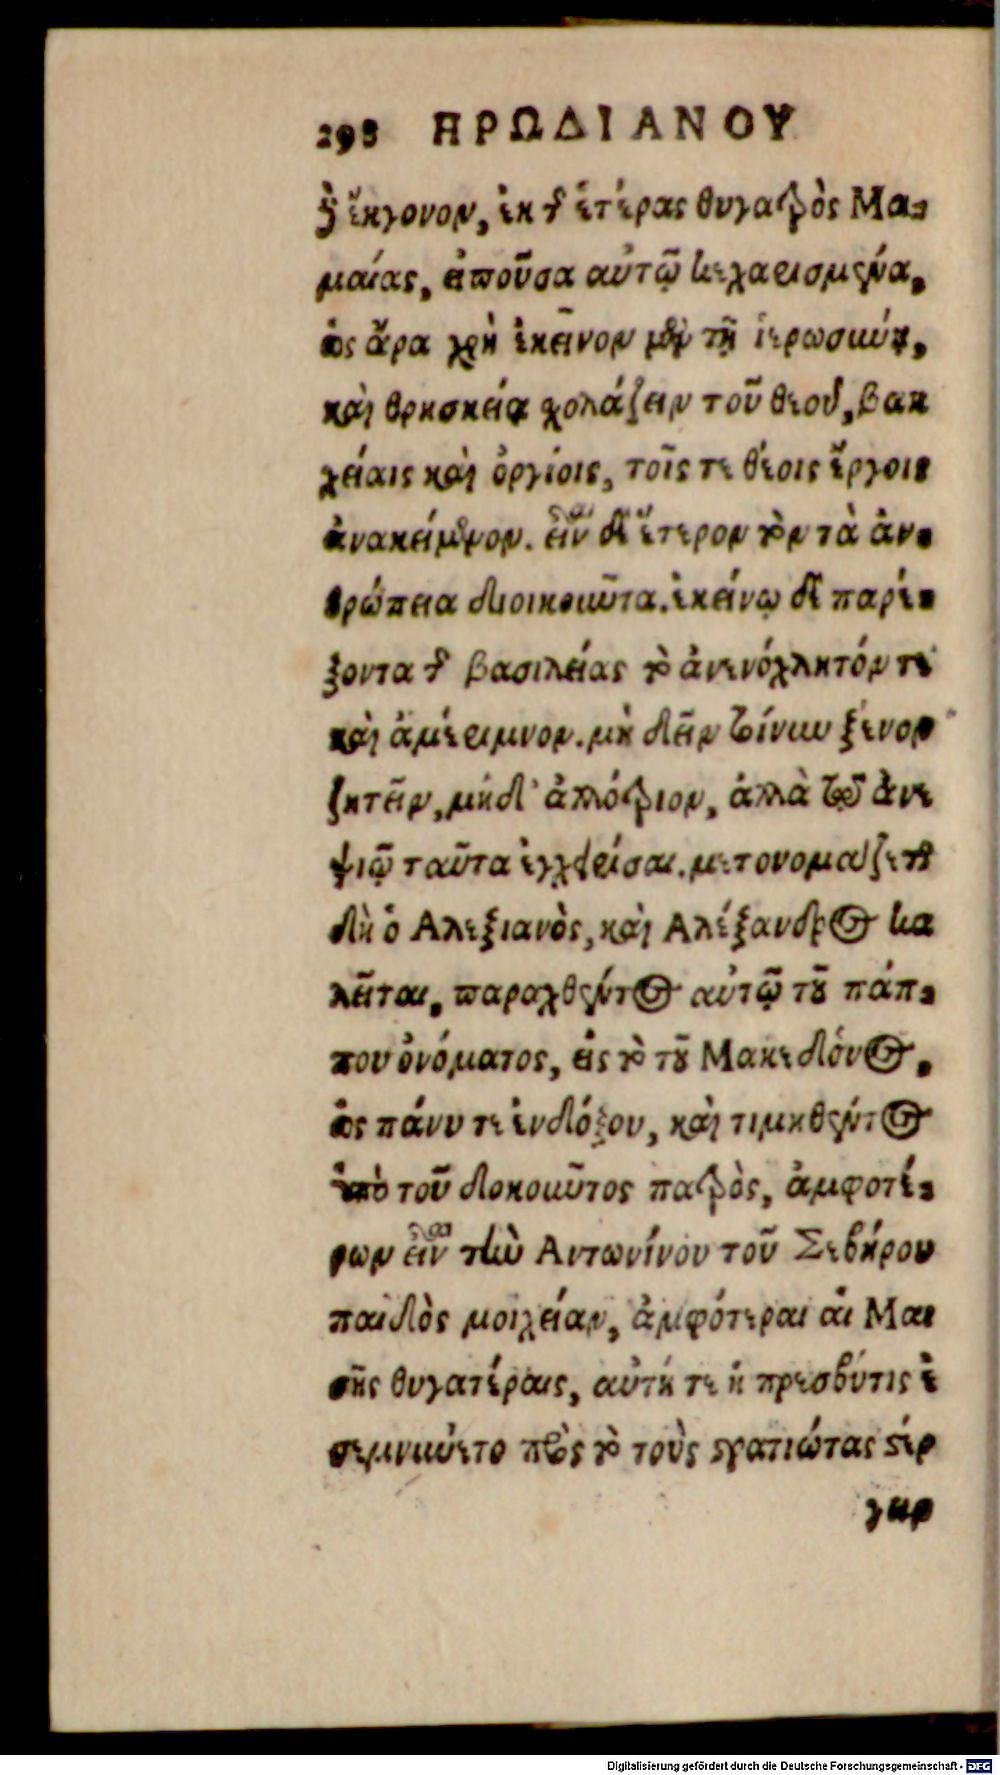 298 ΗΡΩΔΙΑΝΟΥ
δὲ ἔκγονον, ἐκ τῆς ἑτέρας θυγατρὸς Μα-
μαίας, εἰποῦσα αὐτῷ κεχαρισμένα,
ὡς ἄρα χρὴ ἐκεῖνον μὲν τῇ ἱερωσύνῃ,
καὶ θρησκείᾳ σχολάζειν τοῦ θεοῦ, βακ
χείαις καὶ ὀργίοις, τοῖς τε θείοις ἔργοις
ἀνακείμενον. εἶναι δὲ ἕτερον τὸν τὰ ἀν-
θρώπεια διοικοῦντα. ἐκείνῳ δὲ παρέ-
ξοντα τῆς βασιλείας τὸ ἀνενόχλητόν τε
καὶ ἀμέριμνον. μὴ δεῖν τοίνυν ξένον
ζητεῖν, μηδ' ἀλλότριον, ἀλλὰ τῷ ἀνε
ψιῷ ταῦτα ἐγχειρίσαι. μετονομάζεται
δὴ ὁ Αλεξιανὸς, καὶ Αλέξανδρος κα
λεῖται, παραχθέντος αὐτῷ τοῦ πάπ-
που ὀνόματος, εἰς τὸ τοῦ Μακεδόνος,
ὡς πάνυ τε ἐνδόξου, καὶ τιμηθέντος
ὑπὸ τοῦ δοκοῦντος πατρὸς, ἀμφοτέ-
ρων εἶναι τὴν Αντωνίνου τοῦ Σεβήρου
παιδὸς μοιχείαν, ἀμφότεραι αἱ Μαι
σῆς θυγατέραις, αὐτή τε ἡ πρεσβύτις ἐ
σεμνύετο πρὸς τὸ τοὺς στρατιώτας στέρ
γειν
Digitalisierung gefördert durch die Deutsche Forschungsgemeinschaft - DFG